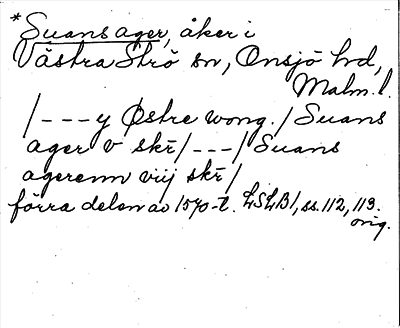 *Suans ager, åker i
Västra Strö sn, Onsjö hd,
Malm. l.
/---y Østre wong./Suans
ager v skr̄/---/Suans
agerenn viij skr̄/
förra delen av 1570-t. LSLB1, ss. 112, 113.
orig.